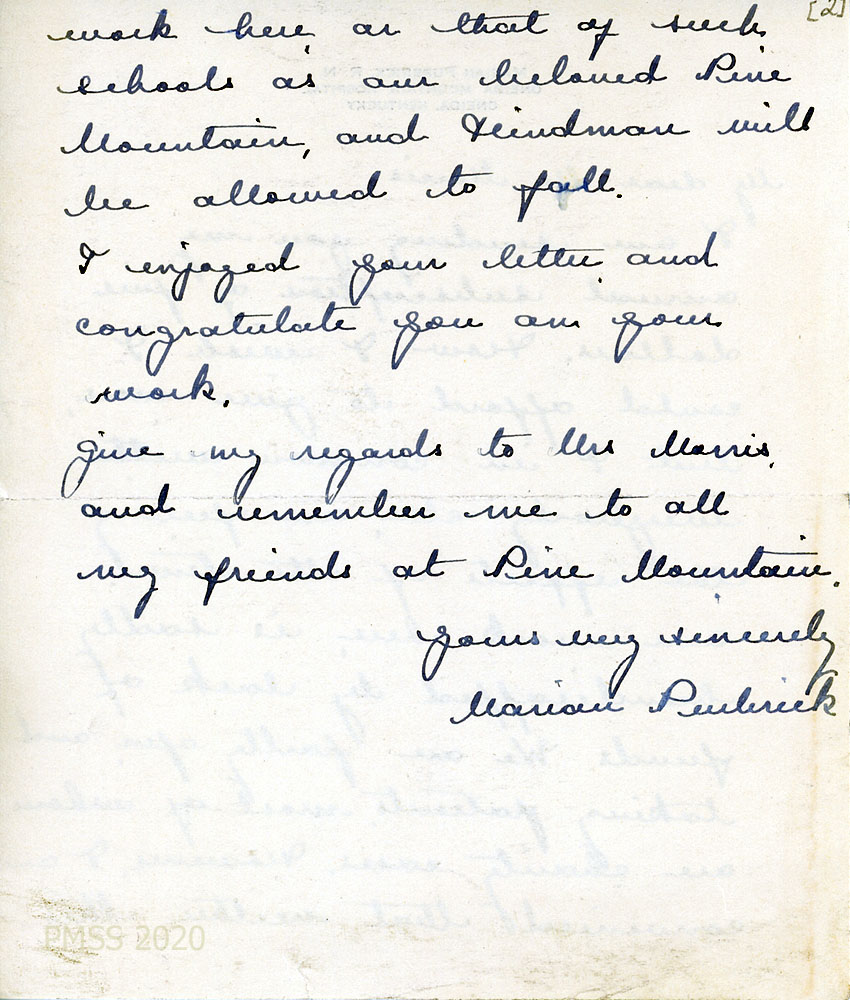 [2]
work here or that of such
schools as our beloved Pine
Mountain, and Hindman will
be allowed to fall.
I enjoyed your letter and
congratulate you on your
work.
Give my regards to Mrs Morris,
and remember me to all
my friends at Pine Mountain.
Yours very sincerely
Marian
PMSS 2020